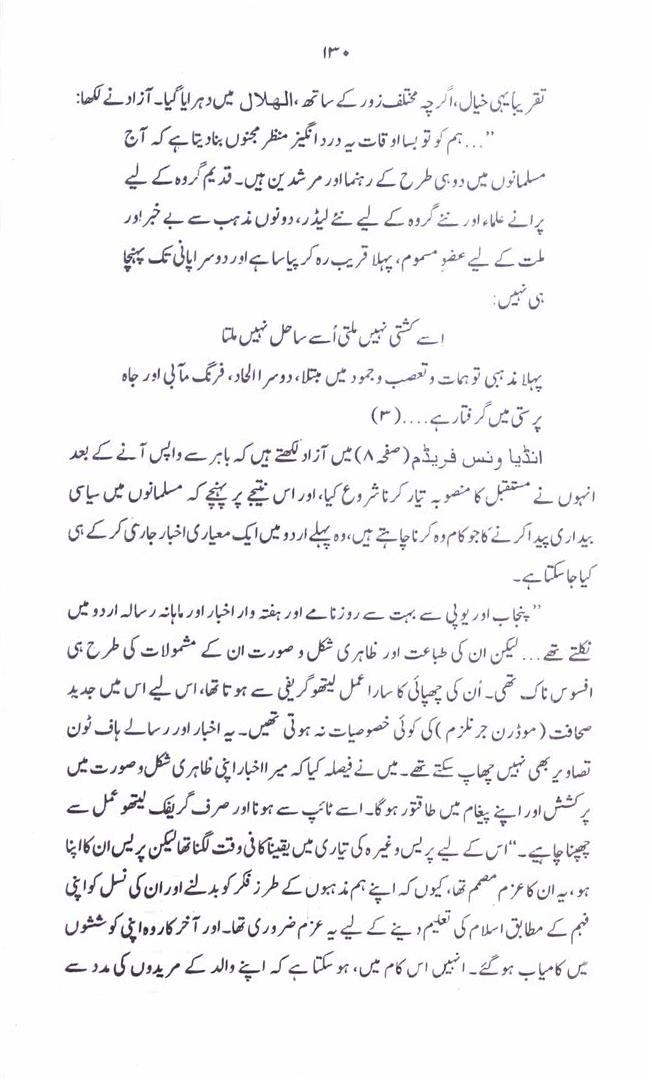 ۱۳۰
تقریباً یہی خیال، اگرچہ مختلف زور کے ساتھ، الھلال میں دہرایا گیا۔ آزاد نے لکھا:
”... ہم کو تو بسا اوقات یہ درد انگیز منظر مجنوں بنا دیتا ہے کہ آج
مسلمانوں میں دو ہی طرح کے رہنما اور مرشدین ہیں۔ قدیم گروہ کے لیے
پرانے علماء اور نئے گروہ کے لیے نئے لیڈر، دونوں مذہب سے بے خبر اور
ملت کے لیے عضوِ مسموم، پہلا قریب رہ کر پیاسا ہے اور دوسرا پانی تک پہنچا
ہی نہیں:
اسے کشتی نہیں ملتی اُسے ساحل نہیں ملتا
پہلا مذہبی توہمات و تعصب و جمود میں مبتلا، دوسرا الحاد، فرنگ مآبی اور جاہ
پرستی میں گرفتار ہے....(۳)
انڈیا ونس فریڈم (صفحہ ۸) میں آزاد لکھتے ہیں کہ باہر سے واپس آنے کے بعد
انہوں نے مستقبل کا منصوبہ تیار کرنا شروع کیا، اور اس نتیجے پر پہنچے کہ مسلمانوں میں سیاسی
بیداری پیدا کرنے کا جو کام وہ کرنا چاہتے ہیں، وہ پہلے اردو میں ایک معیاری اخبار جاری کر کے ہی
کیا جا سکتا ہے۔
”پنجاب اور یو پی سے بہت سے روزنامے اور ہفتہ وار اخبار اور ماہانہ رسالہ اردو میں
نکلتے تھے... لیکن ان کی طباعت اور ظاہری شکل و صورت ان کے مشمولات کی طرح ہی
افسوس ناک تھی۔ اُن کی چھپائی کا سارا عمل لیتھو گریفی سے ہوتا تھا، اس لیے اس میں جدید
صحافت (موڈرن جرنلزم) کی کوئی خصوصیات نہ ہوتی تھیں۔ یہ اخبار اور رسالے ہاف ٹون
تصاویر بھی نہیں چھاپ سکتے تھے۔ میں نے فیصلہ کیا کہ میرا اخبار اپنی ظاہری شکل و صورت میں
پرکشش اور اپنے پیغام میں طاقتور ہوگا۔ اسے ٹائپ سے ہونا اور صرف گریفک لیتھو عمل سے
چھپنا چاہیے۔“ اس کے لیے پریس وغیرہ کی تیاری میں یقیناً کافی وقت لگنا تھا لیکن پریس ان کا اپنا
ہو، یہ ان کا عزم مصمم تھا، کیوں کہ اپنے ہم مذہبوں کے طرز فکر کو بدلنے اور ان کی نسل کو اپنی
فہم کے مطابق اسلام کی تعلیم دینے کے لیے یہ عزم ضروری تھا۔ اور آخر کار وہ اپنی کوششوں
میں کامیاب ہو گئے۔ انہیں اس کام میں، ہو سکتا ہے کہ اپنے والد کے مریدوں کی مدد سے